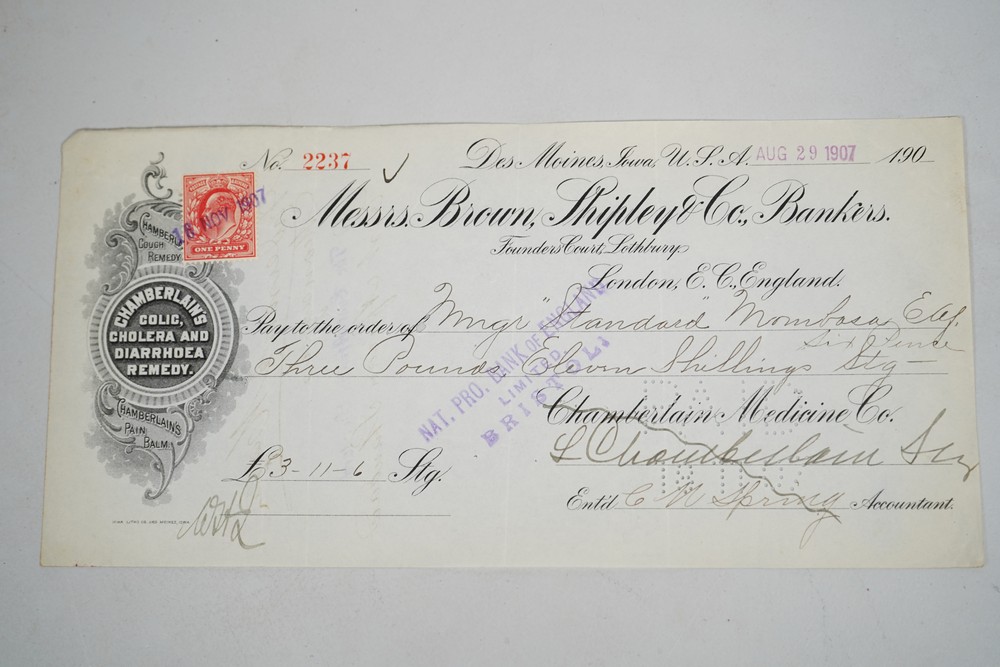 No. 2237
Des Moines, Iowa, U.S.A. AUG 29 1907 190
Messrs. Brown, Shipley & Co., Bankers.
Founders Court, Lothbury
London, E.C., England.
Pay to the order of Mngr "Standard" Mombasa
Six Pence
Three Pounds, Eleven Shillings Stg
Chamberlain Medicine Co.
L Chamberlain Secy
£3-11-6 Stg.
Ent'd C W Spring Accountant.
CHAMBERLAIN'S
COUGH
REMEDY
CHAMBERLAIN'S
COLIC,
CHOLERA AND
DIARRHOEA
REMEDY.
CHAMBERLAIN'S
PAIN
BALM
ONE PENNY
18 NOV 1907
NAT. PRO. BANK OF ENGLAND
LIMITED
BRISTOL